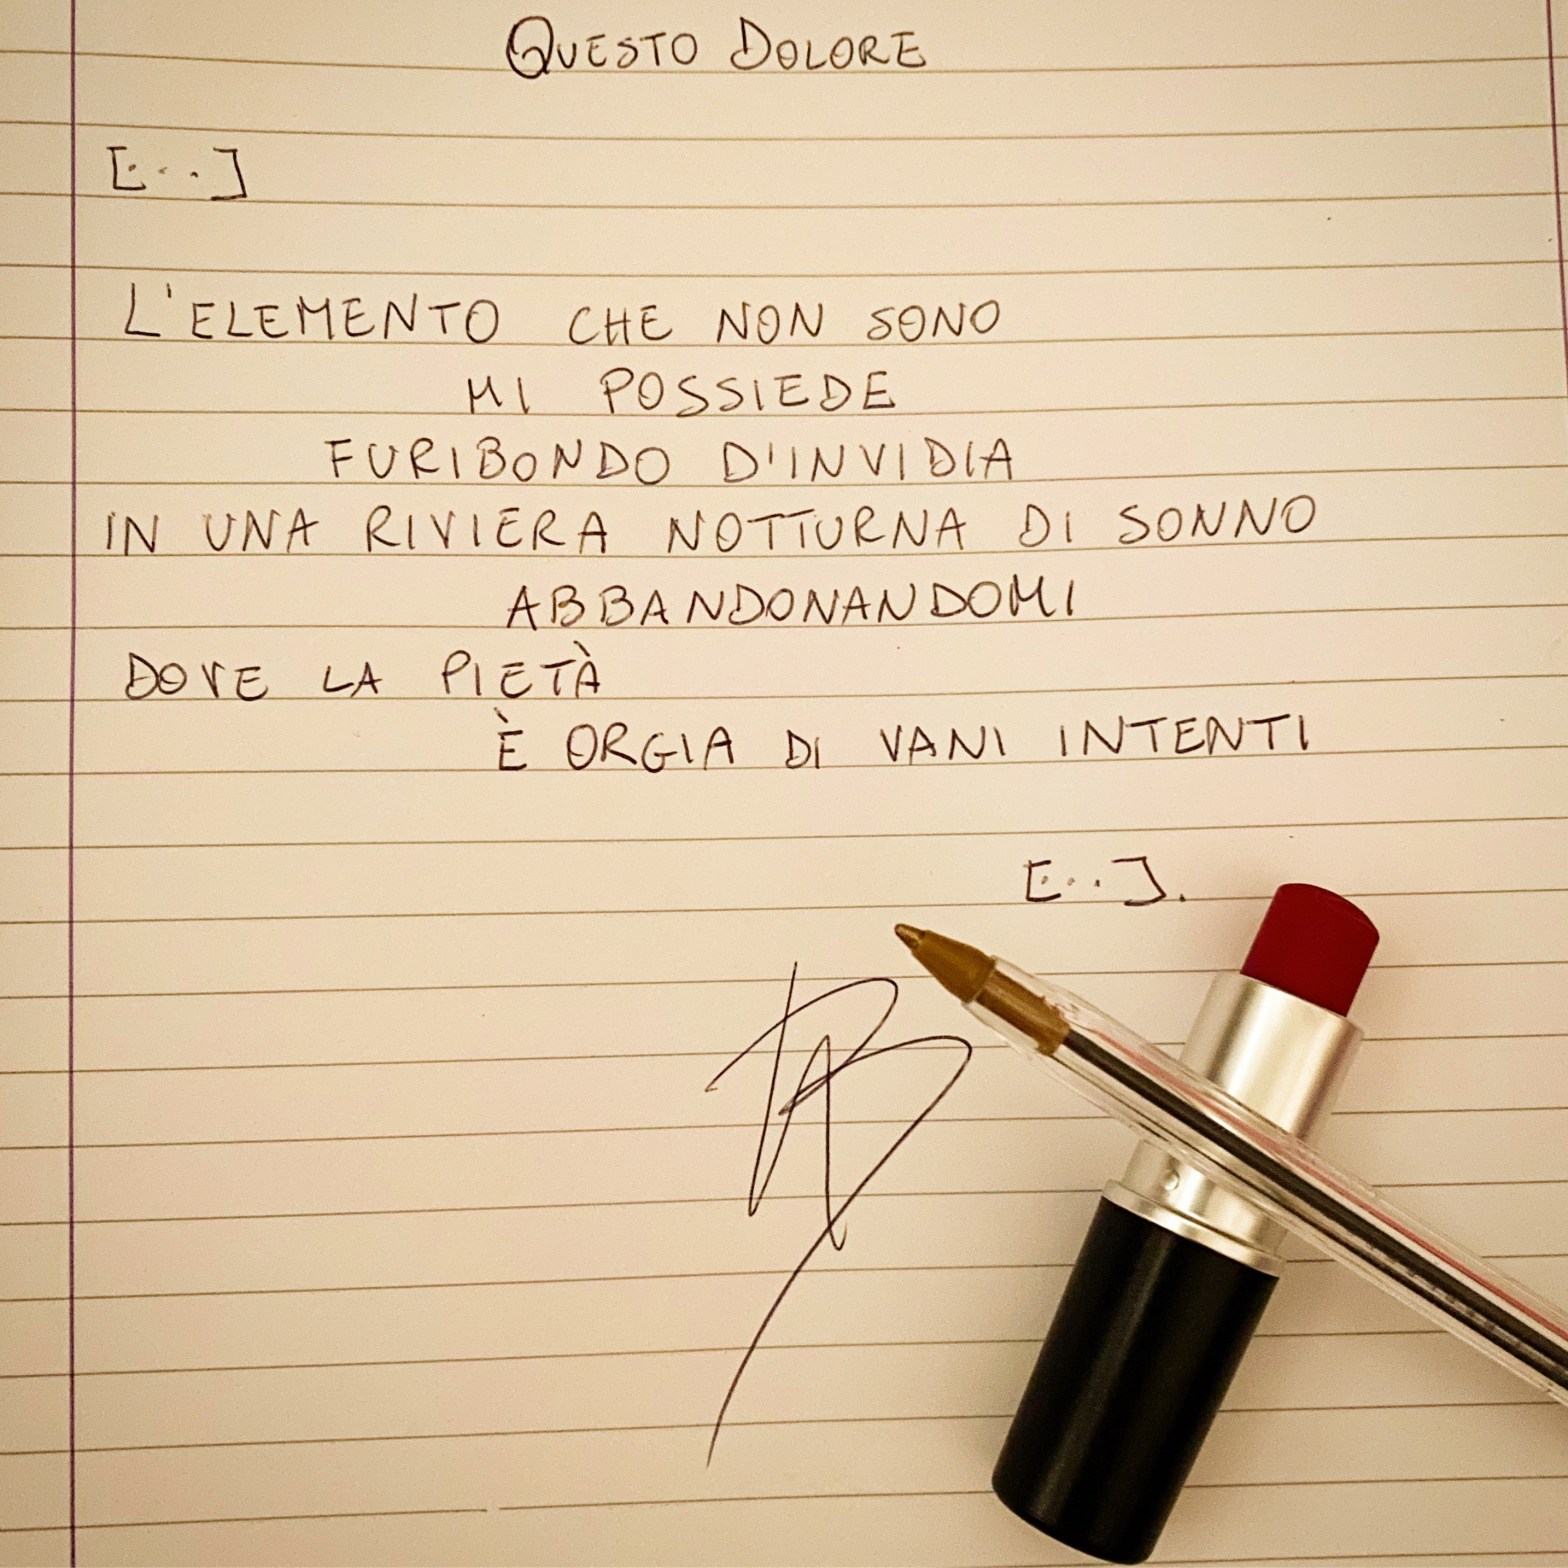 Questo Dolore
[...]
L'ELEMENTO CHE NON SONO
MI POSSIEDE
FURIBONDO D'INVIDIA
IN UNA RIVIERA NOTTURNA DI SONNO
ABBANDONANDOMI
DOVE LA PIETÀ
È ORGIA DI VANI INTENTI
[...].